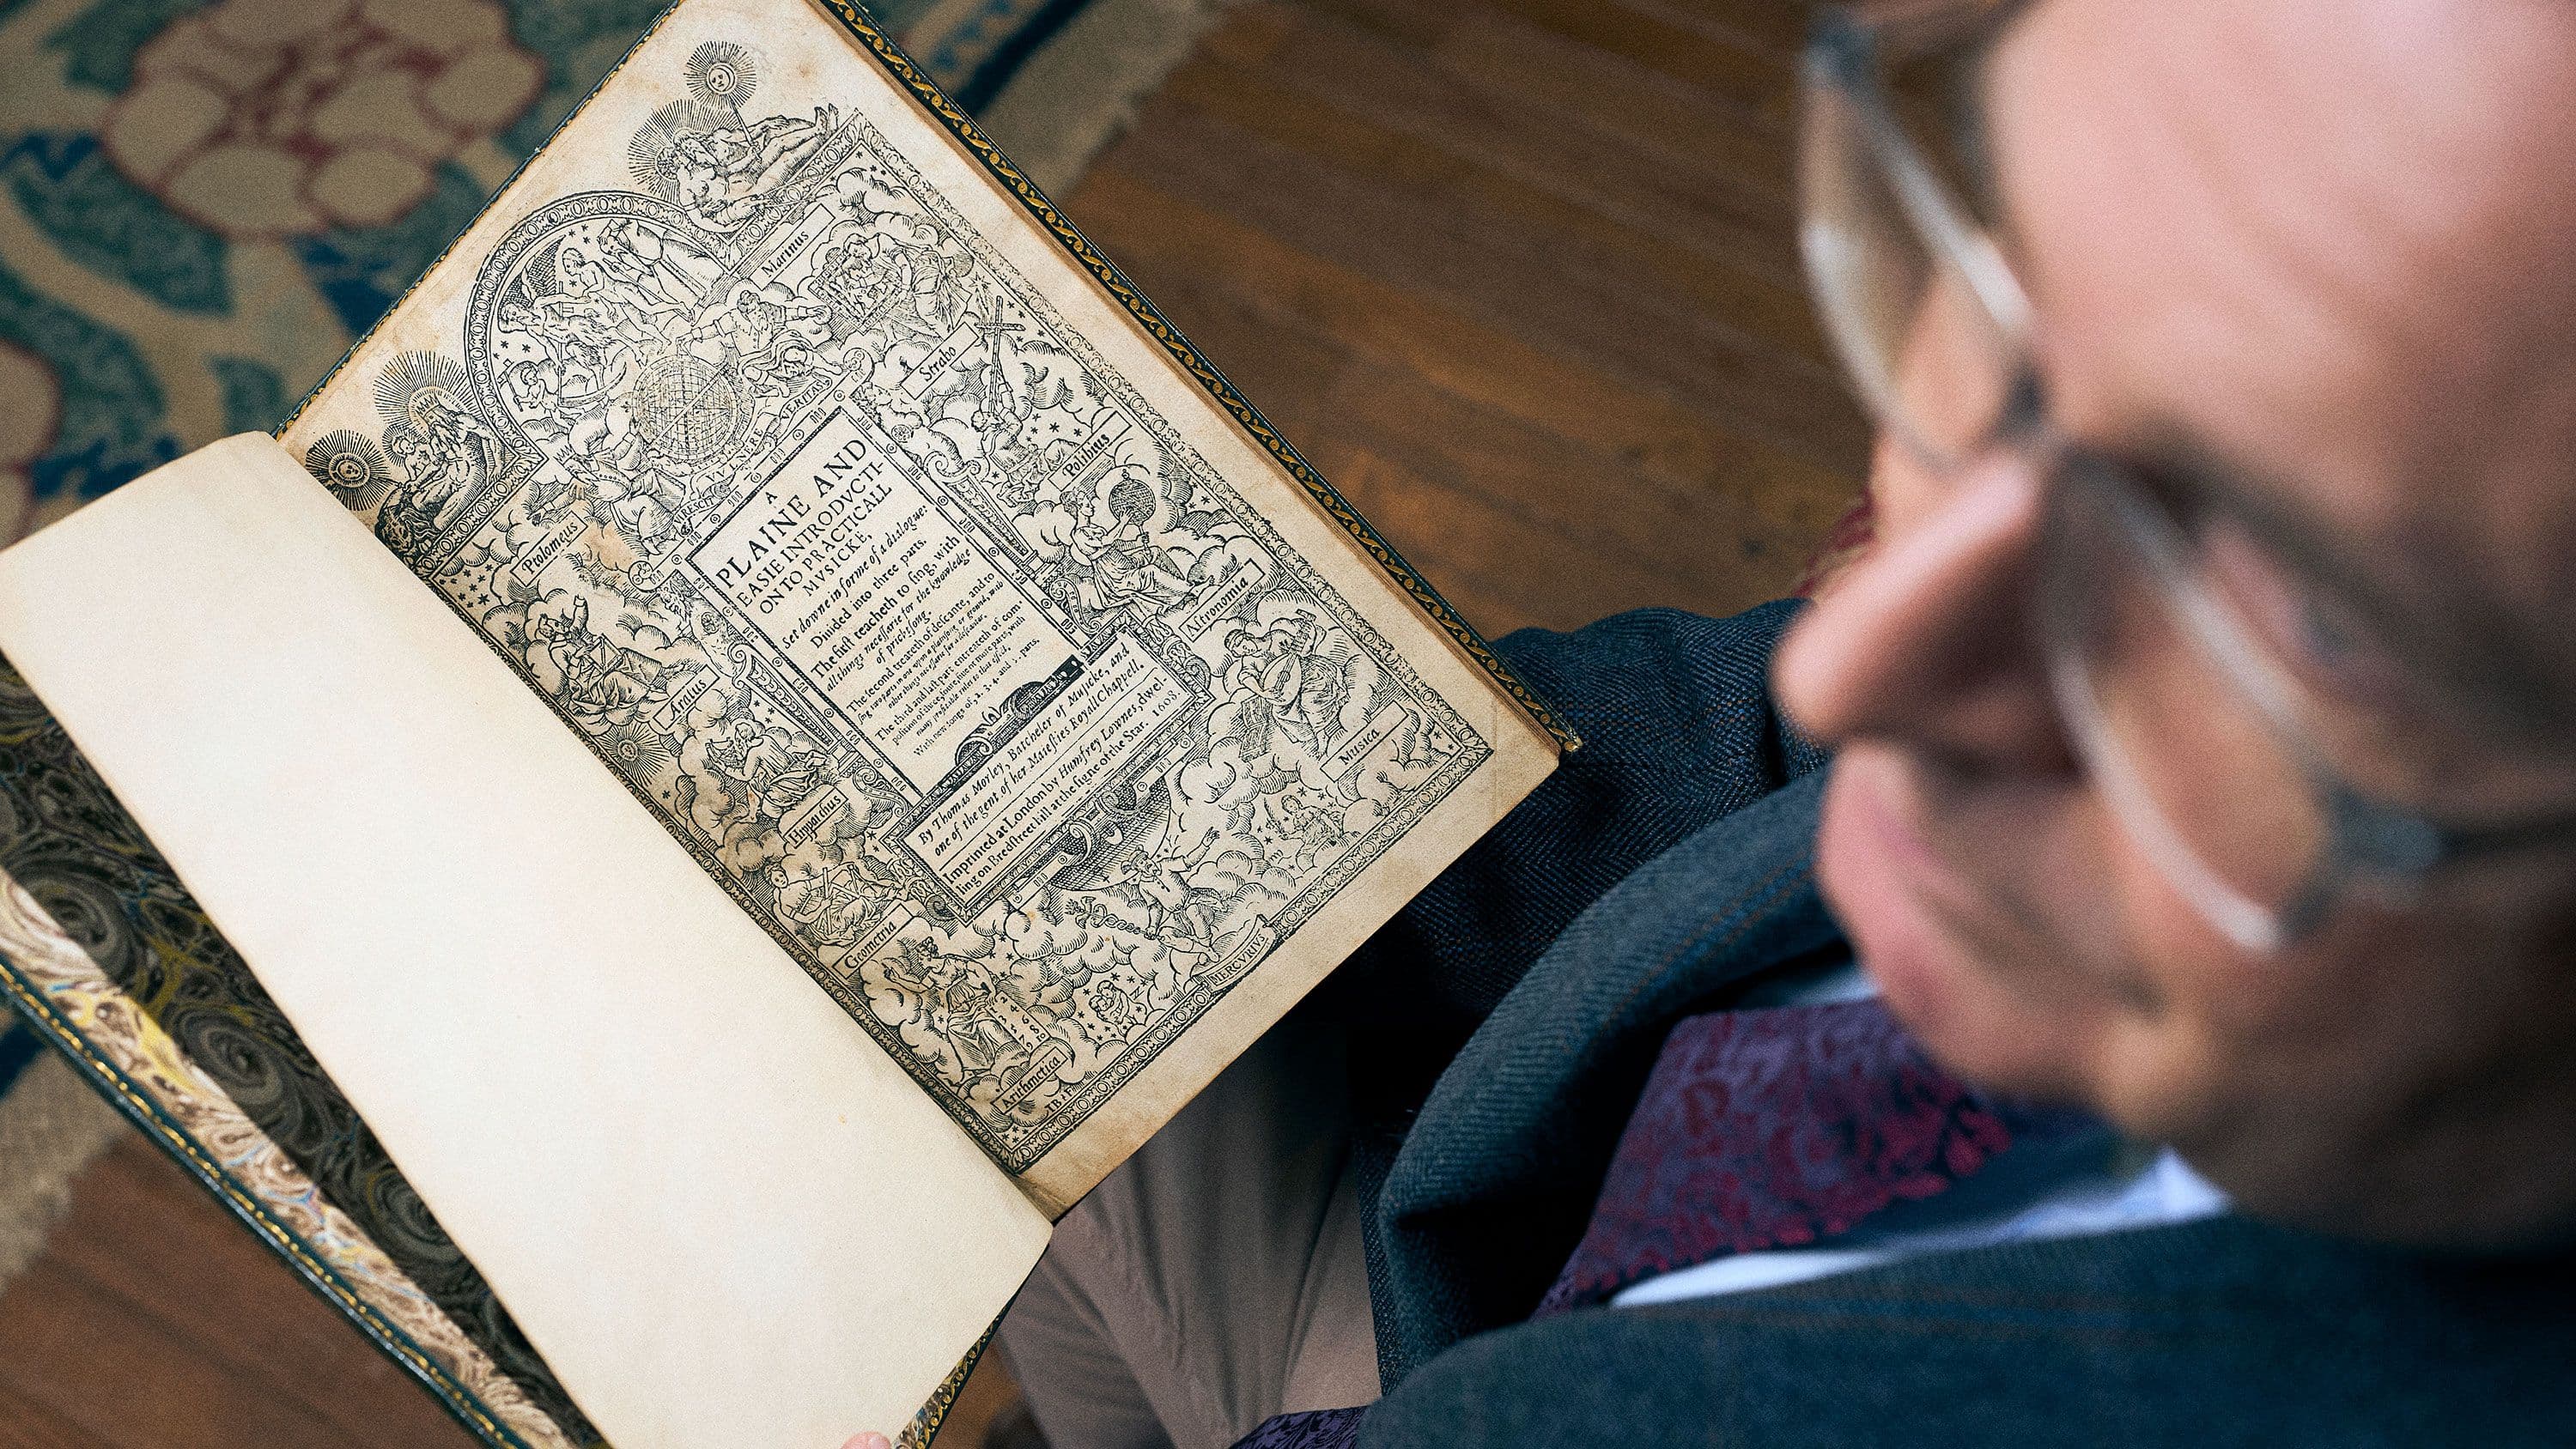 Marinus
Strabo
Polibius
Astronomia
Musica
MERCVRIVS
Ptolomeus
Aratus
Hipparchus
Geometria
Arithmetica
VIRESCIT VVLNERE VERITAS
A
PLAINE AND
EASIE INTRODVCTI-
ON TO PRACTICALL
MVSICKE,
Set downe in forme of a dialogue:
Diuided into three parts.
The first teacheth to sing, with
all things necessarie for the knowledge
of prick-song.
The second treateth of descante, and to
sing two parts in one vpon a plainsong or ground, with
other things necessarie for a descanter.
The third and last part entreateth of com-
position of three, foure, fiue or more parts, with
many profitable rules to that effect.
With new songs of, 2. 3. 4. and 5. parts.
By Thomas Morley, Batcheler of Musicke, and
one of the gent of her Maiesties Royall Chappell.
Imprinted at London by Humfrey Lownes, dwel-
ling on Bredstreet hill at the signe of the Star. 1608.